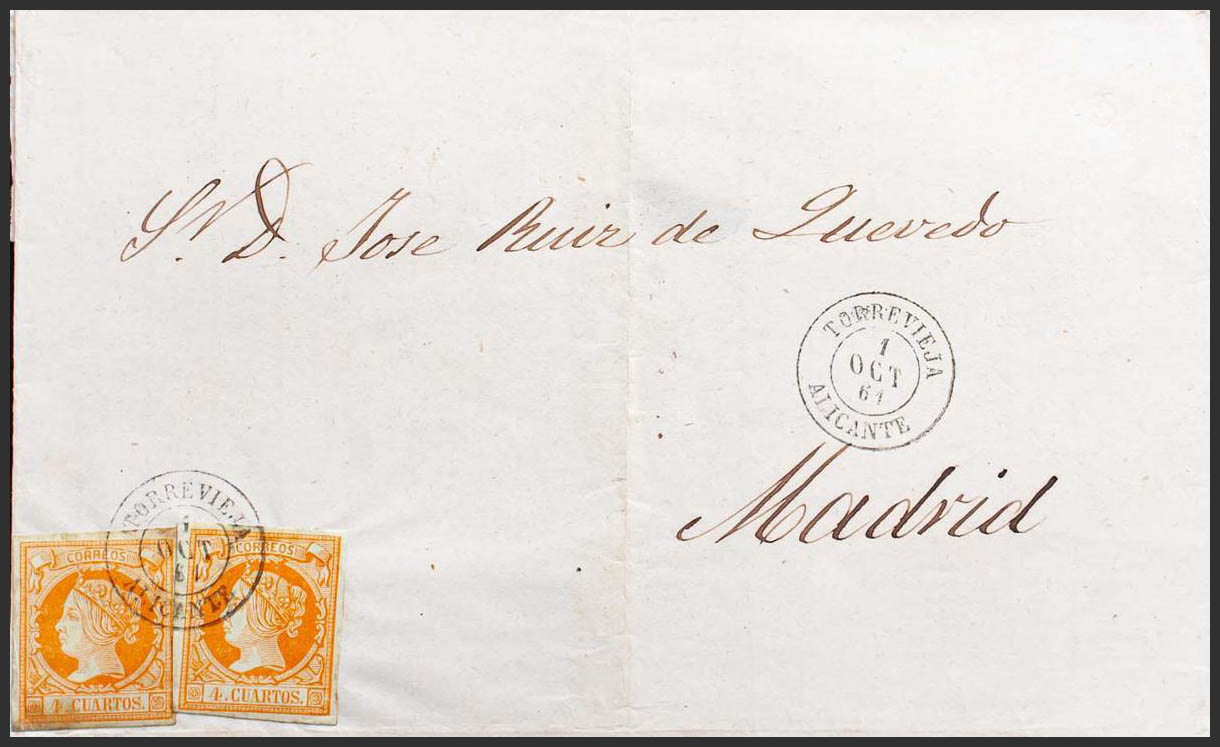 Sr. D. Jose Ruiz de Quevedo
TORREVIEJA
1
OCT
61
ALICANTE
Madrid
TORREVIEJA
1
OCT
61
ALICANTE
CORREOS
4. CUARTOS.
CORREOS
4. CUARTOS.